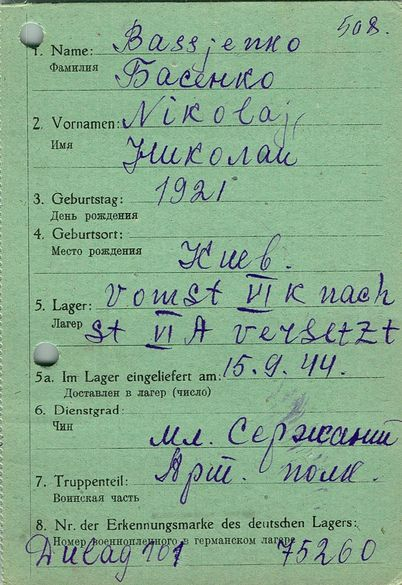 508.
1. Name: Bassjenko
Фамилия Басенко
2. Vornamen: Nikolaj
Имя Николай
3. Geburtstag: 1921
День рождения
4. Geburtsort:
Место рождения Киев.
5. Lager: Vom St VI K nach
Лагер St VI A versetzt
5a. Im Lager eingeliefert am: 15.9.44.
Доставлен в лагер (число)
6. Dienstgrad:
Чин мл. Сержаний
7. Truppenteil: Арт. полк.
Воинская часть
8. Nr. der Erkennungsmarke des deutschen Lagers:
Номер военнопленного в германском лагере
Dulag 101 75260